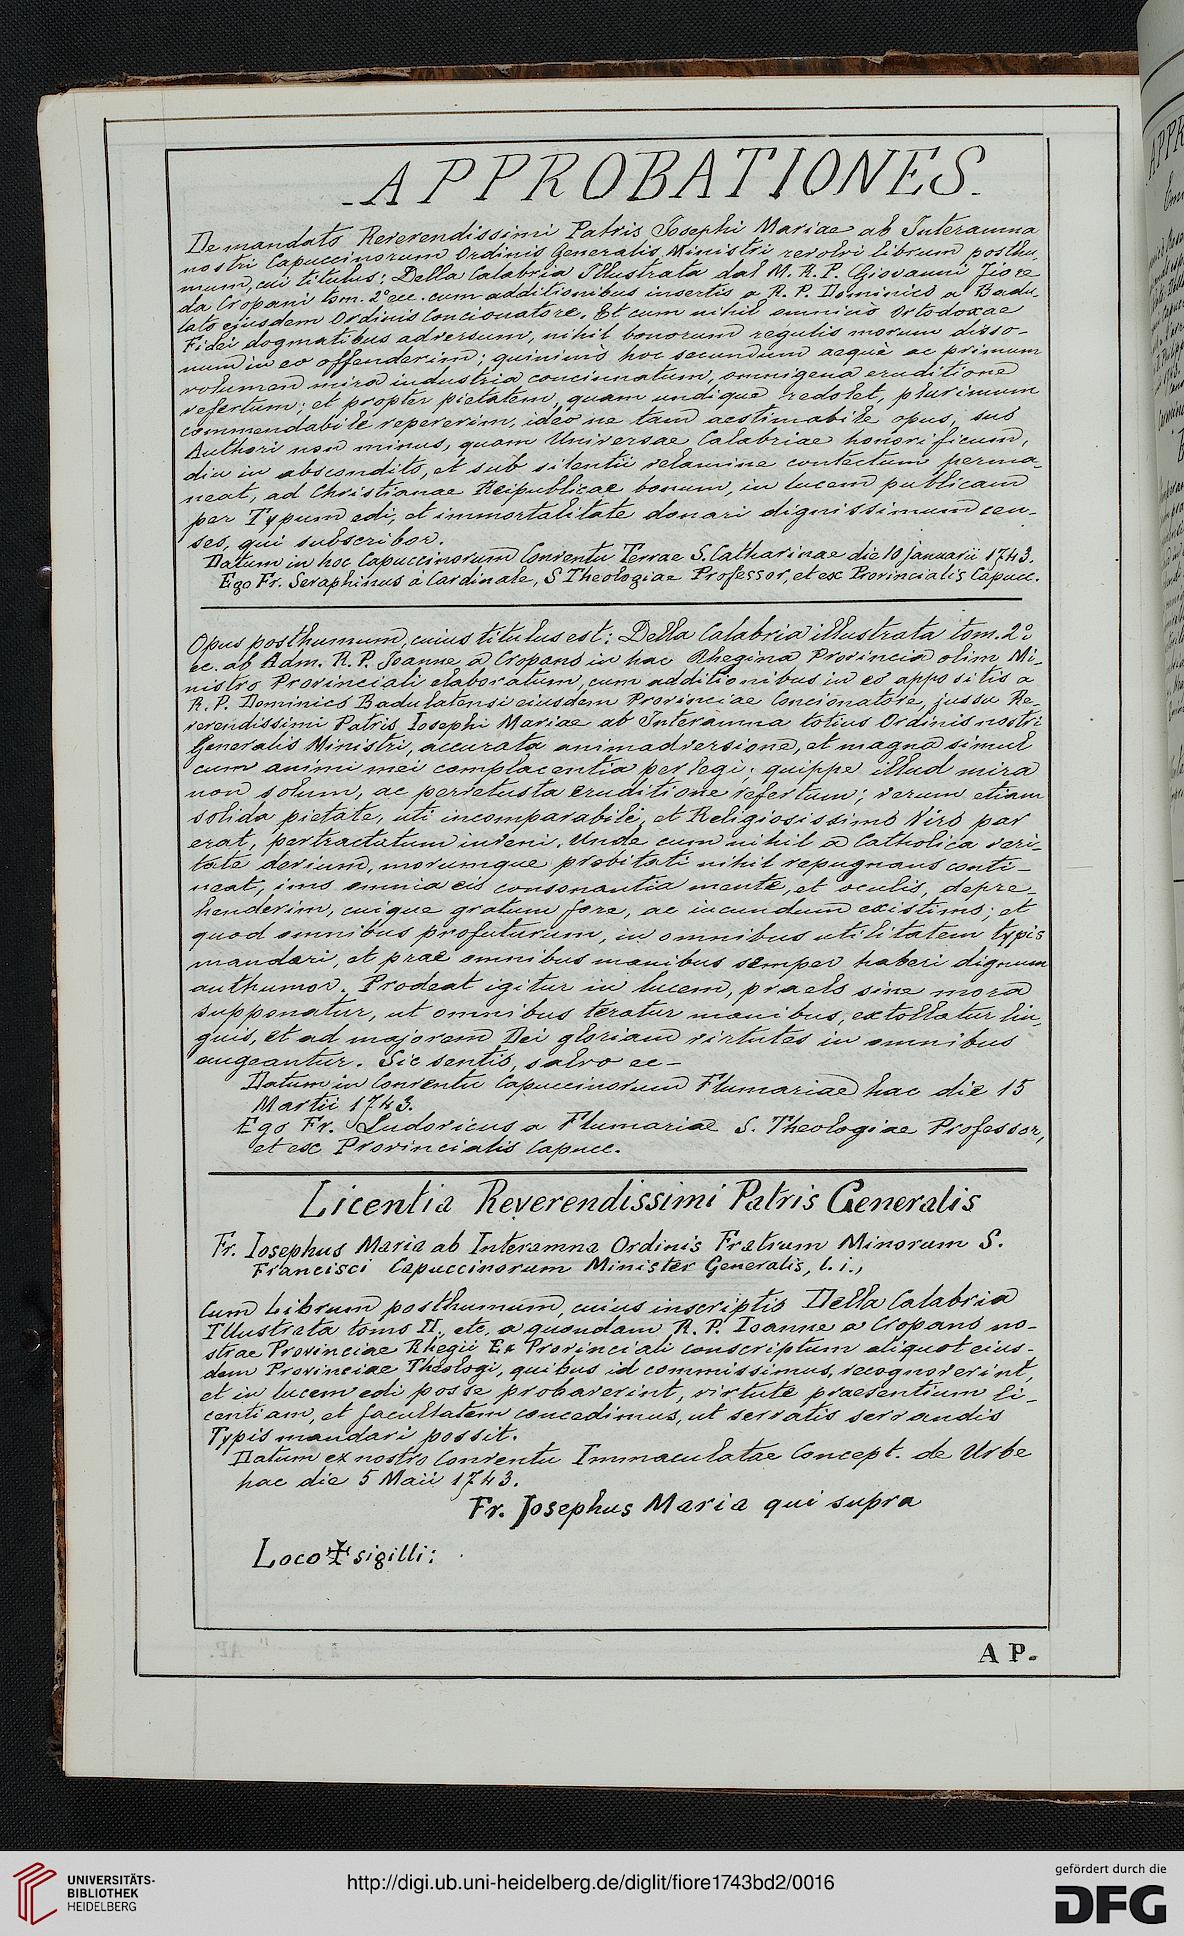 APPROBATIONES.
De mandato Reverendissimi Patris Josephi Mariae ab Interamna
nostri Capuccinorum Ordinis Generalis Ministri revolvi librum posthu-
mum, cui titulus: Della Calabria Illustrata dal M. R. P. Giovanni Fiore
da Cropani tom. 2° ecc. cum additionibus insertis a R. P. Dominico a Badu-
lato ejusdem Ordinis Concionatore. Et cum nihil omnino Ortodoxae
Fidei dogmatibus adversum, nihil bonorum regulis morum disso-
num in eo offenderim; quinimo hoc secundum aequè ac primum
volumen mira industria concinnatum, omnigena eruditione
refertum; et propter pietatem, quam undique redolet, plurimum
commendabile repererim, ideo ne tam aestimabile opus, suo
Authori non minus, quam Universae Calabriae honorificum,
diu in abscondito, et sub silentii velamine contectum perma-
neat, ad Christianae Reipublicae bonum, in lucem publicam
per Typum edi, et immortalitate donari dignissimum cen-
seo, qui subscribor.
Datum in hoc Capuccinorum Conventu Terrae S. Catharinae die 10 Januarii 1743.
Ego Fr. Seraphinus à Cardinale, S Theologiae Professor, et ex Provincialis Capucc.
Opus posthumum, cuius titulus est: Della Calabria illustrata tom. 2°:
ec. ab Adm. R. P. Joanne a Cropano in hac Rhegina Provincia olim Mi-
nistro Provinciali elaboratum, cum additionibus in eo appositis a
R. P. Dominico Badulatensi eiusdem Provinciae Concionatore, jussu Re-
verendissimi Patris Iosephi Mariae ab Interamna totius Ordinis nostri
Generalis Ministri, accurata animadversione, et magna simul
cum animi mei complacentia perlegi; quippe illud mira
non solum, ac pervetusta eruditione refertum; verum etiam
solida pietate, uti incomparabili, et Religiosissimo Viro par
erat, pertractatum inveni. Unde cum nihil a Catholica veri-
tate devium, morumque probitati nihil repugnans conti-
neat, imo omnia eis consonantia mente, et oculis, depre-
henderim, cuique gratum fore, ac iucundum existimo; et
quod omnibus profuturum, in omnibus utilitatem typis
mandari, et prae omnibus manibus semper haberi dignum
authumor. Prodeat igitur in lucem, praelo sine mora
supponatur, ut omnibus teratur manibus, extollatur lin-
guis, et ad majorem Dei gloriam virtutes in omnibus
augeantur. Sic sentio, salvo ec-
Datum in Conventu Capuccinorum Flumariae hac die 15
Martii 1743.
Ego Fr. Ludovicus a Flumariae S. Theologiae Professor,
et ex Provincialis Capucc.
Licentia Reverendissimi Patris Generalis
Fr. Iosephus Maria ab Interamna Ordinis Fratrum Minorum S.
Francisci Capuccinorum Minister Generalis, l. i.,
Cum Librum posthumum, cuius inscriptio Della Calabria
Illustrata tomo II, etc. a quondam R. P. Ioanne a Cropano no-
strae Provinciae Rhegii Ex Provinciali conscriptum aliquot eius-
dem Provinciae Theologi, quibus id commissimus, recognoverint,
et in lucem edi posse probaverint, virtute praesentium li-
centiam, et facultatem concedimus, ut servatis servandis
Typis mandari possit.
Datum ex nostro Conventu Immaculatae Concept. de Urbe
hac die 5 Maii 1743.
Fr. Josephus Maria qui supra
Loco ✠ sigilli:
AP.
UNIVERSITÄTS-
BIBLIOTHEK
HEIDELBERG
http://digi.ub.uni-heidelberg.de/diglit/fiore1743bd2/0016
gefördert durch die
DFG